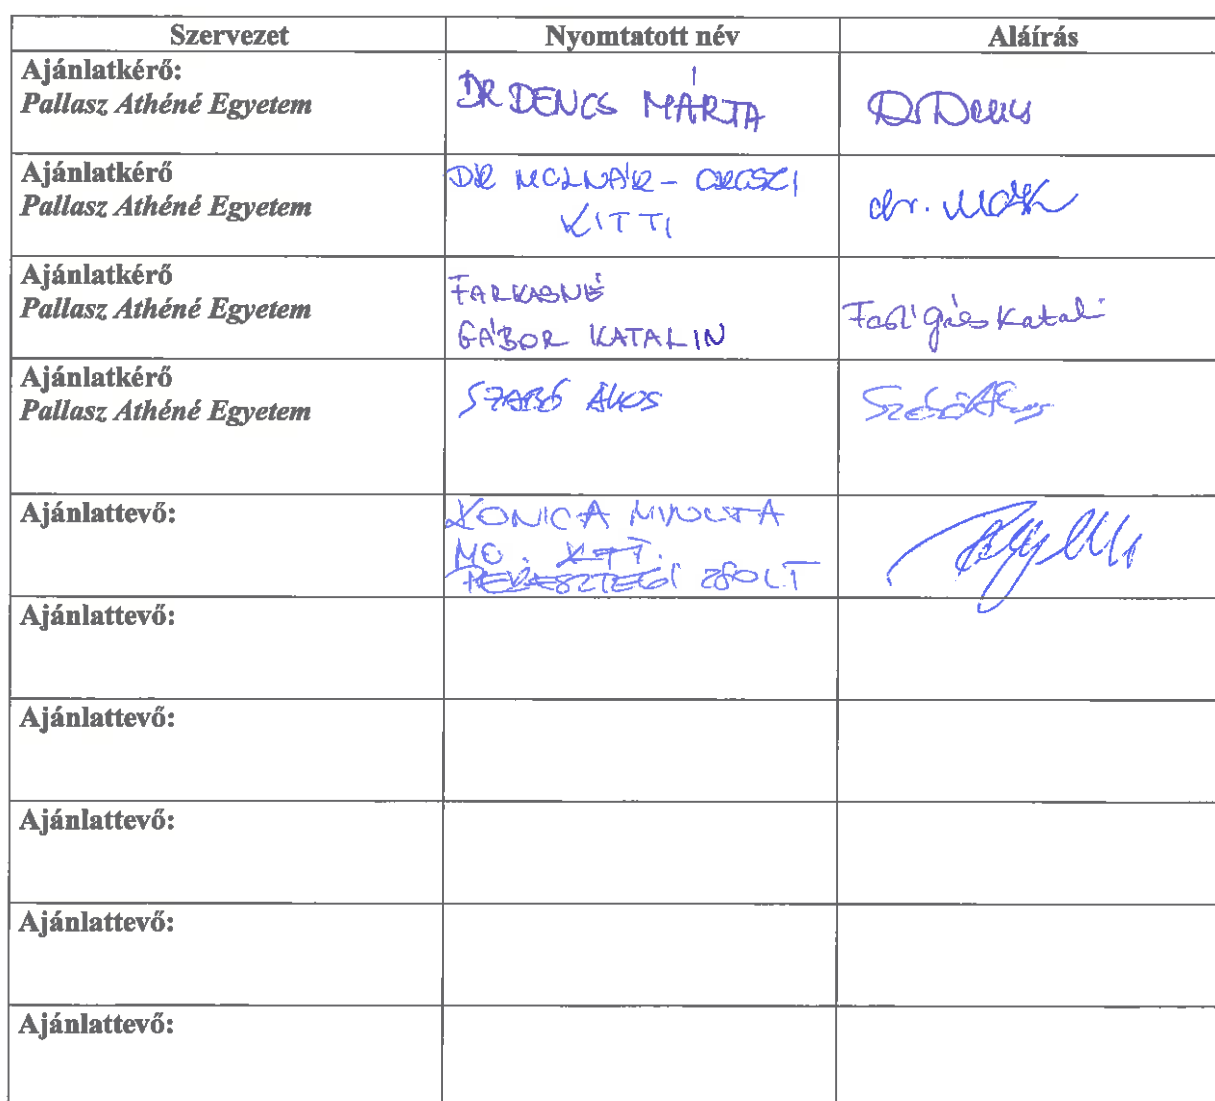 Szervezet Nyomtatott név Aláírás
Ajánlatkérő:
Pallasz Athéné Egyetem
DR DENCS MÁRTA
Ajánlatkérő
Pallasz Athéné Egyetem
DR MOLNÁR - OROSZI
KITTI
dr. MOK
Ajánlatkérő
Pallasz Athéné Egyetem
FARKASNÉ
GÁBOR KATALIN
Ajánlatkérő
Pallasz Athéné Egyetem
SZABÓ ÁKOS
Ajánlattevő:
KONICA MINOLTA
MO. KFT.
PERESZTEGI ZSOLT
Ajánlattevő:
Ajánlattevő:
Ajánlattevő:
Ajánlattevő:
Ajánlattevő: